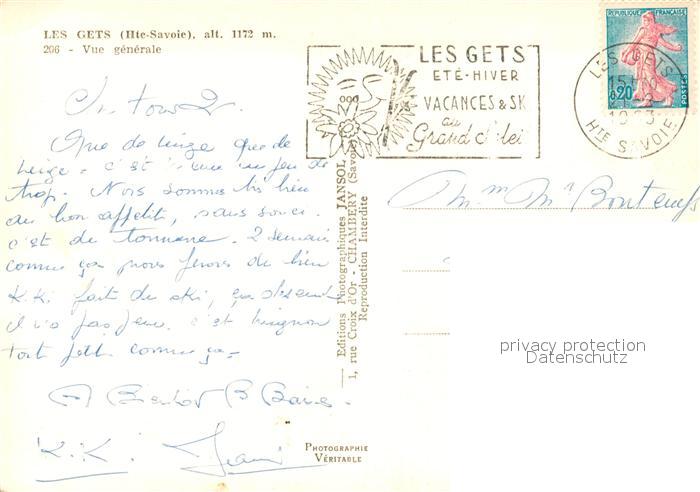 LES GETS (Hte-Savoie), alt. 1172 m.
206 - Vue générale
LES GETS
ETÉ-HIVER
VACANCES & SKI
au
Grand
REPUBLIQUE FRANÇAISE
0,20
POSTES
LES GETS
15
1963
HTE SAVOIE
Que de neige que de
neige. c'est un peu
trop. Nous sommes très bien
du bon appétit, sans souci.
c'est du tonnerre. 2 semaines
comme ça nous ferons du bien
Kiki fait du ski,
c'est mignon
tout petit comme ça.
A Bientôt B Baisers
Kiki Jean
M. Mme Bontemps
Editions Photographiques JANSOL
1, rue Croix d'Or - CHAMBERY (Savoie)
Reproduction Interdite
PHOTOGRAPHIE
VÉRITABLE
privacy protection
Datenschutz